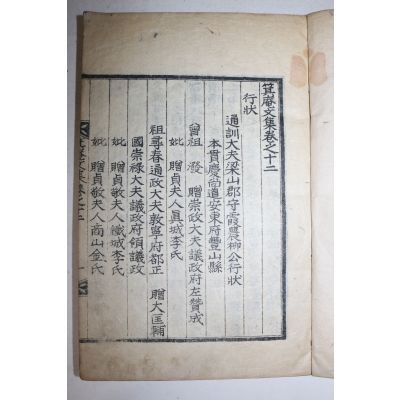 箕庵文集卷之十二
行狀
通訓大夫梁山郡守霞農柳公行狀
本貫慶尙道安東府豐山縣
曾祖 潑 贈崇政大夫議政府左贊成
妣 贈貞敬夫人眞城李氏
祖尋春通政大夫敦寧府都正 贈大匡輔
國崇祿大夫議政府領議政
妣 贈貞敬夫人鐵城李氏
妣 贈貞敬夫人商山金氏